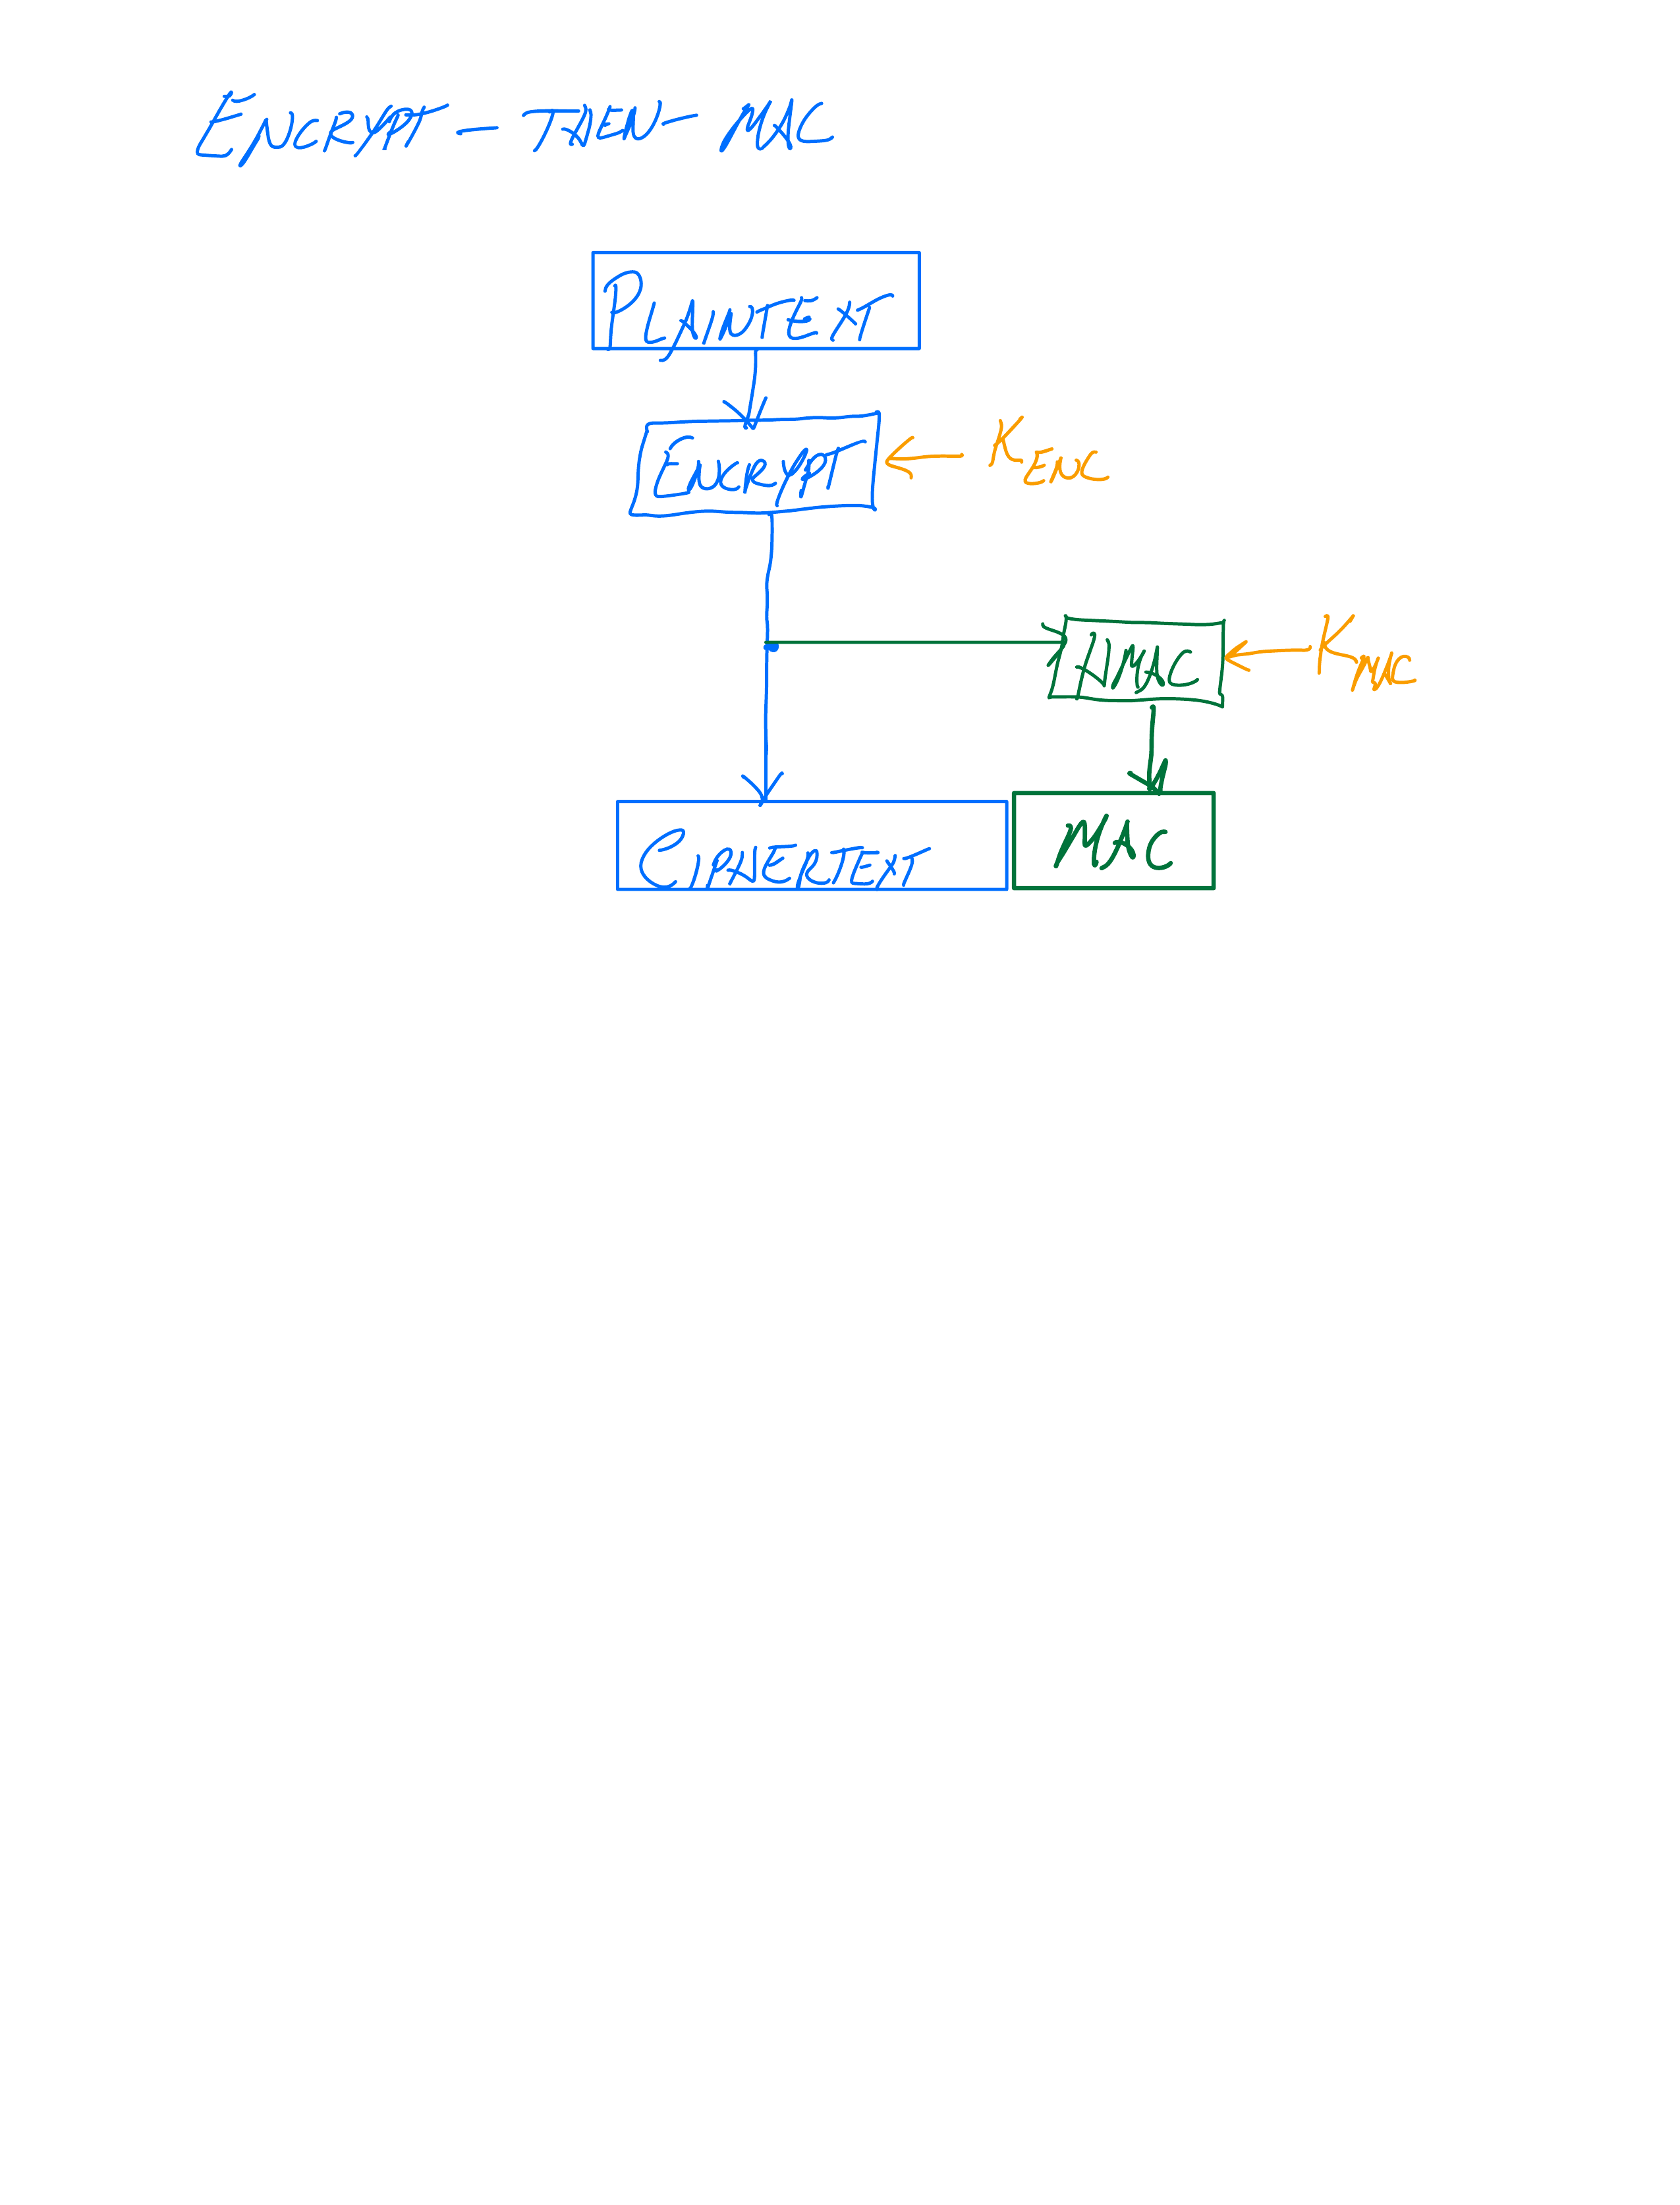 ENCRYPT-THEN-MAC
PLAINTEXT
ENCRYPT
KENC
HMAC
KMAC
CIPHERTEXT
MAC